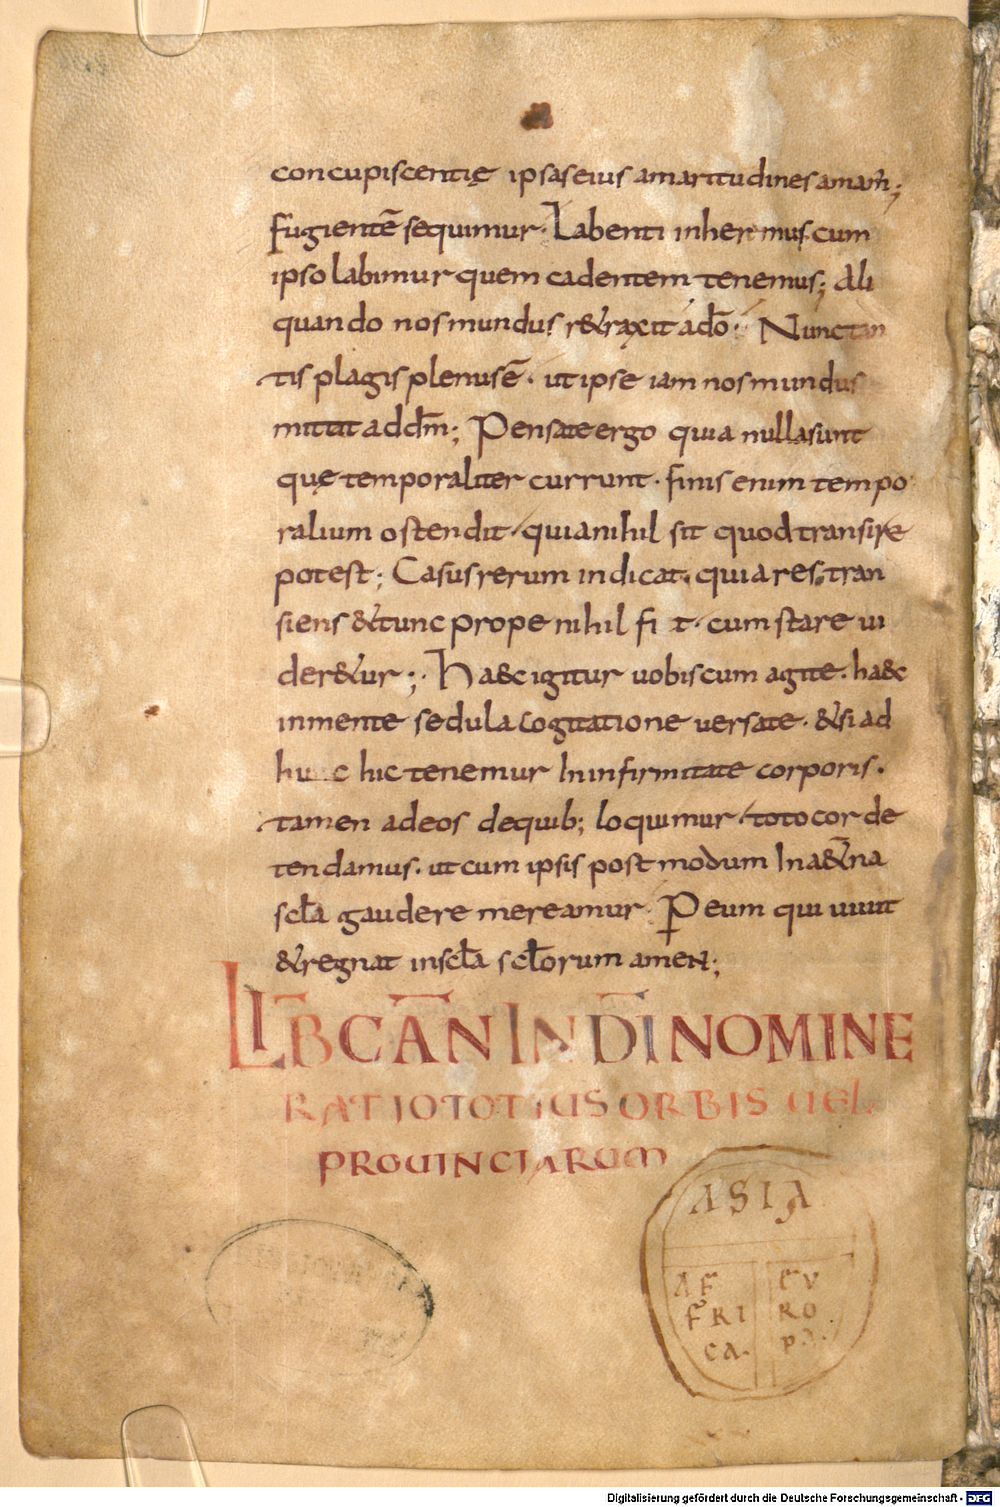 concupiscentię ipsas eius amaritudines amam̄;
fugientē sequimur. Labenti inheremus. cum
ipso labimur quem cadentem tenemus; Ali
quando nos mundus r&raxit adō. Nunc tan
tis plagis plenus ē. ut ipse iam nos mundus
mittit ad dm̄; Pensate ergo quia nulla sunt
quę temporaliter currunt. finis enim tempo
ralium ostendit. quia nihil sit quod transire
potest; Casus rerum indicat. quia res tran
siens & tunc prope nihil fit. cum stare ui
der&ur; Ha&c igitur uobiscum agite. ha&c
in mente sedula cogitatione uersate. & si ad
hic tenemur In infirmitate corporis.
tamen ad eos de quib; loquimur toto corde
tendamus. ut cum ipsis postmodum In a&̄na
scl̄a gaudere mereamur. P eum qui uiuit
& regnat in scl̄a scl̄orum amen;
LIB̄ CĀN IN DĪ NOMINE
RATIO TOTIUS ORBIS UEL
PROUINCIARUM
ASIA
AF EU
FRI RO
CA. PA.
Digitalisierung gefördert durch die Deutsche Forschungsgemeinschaft - DFG